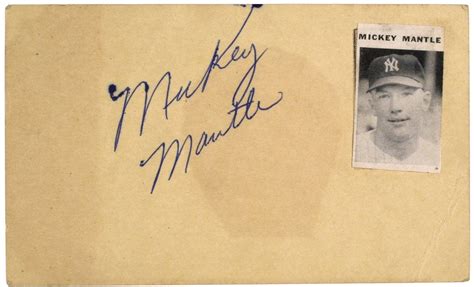 MICKEY MANTLE
NY
Mickey
Mantle